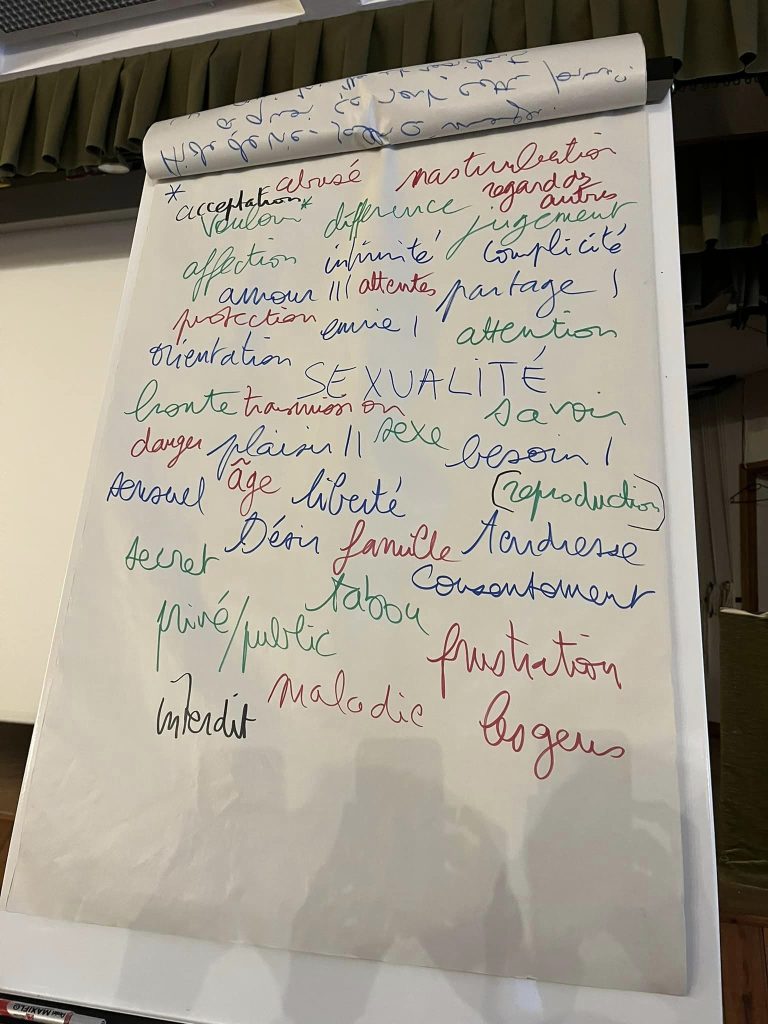 * abusé masturbation
acceptation regard des
autres
vouloir * différence jugement
affection intimité complicité
amour !!! attentes partage !
protection envie ! attention
orientation
SEXUALITÉ
honte transmission savoir
danger plaisir !! sexe besoin !
sensuel âge liberté (reproduction)
secret Désir famille tendresse
tabou consentement
privé/public
frustration
interdit maladie les gens
MAXIFLO